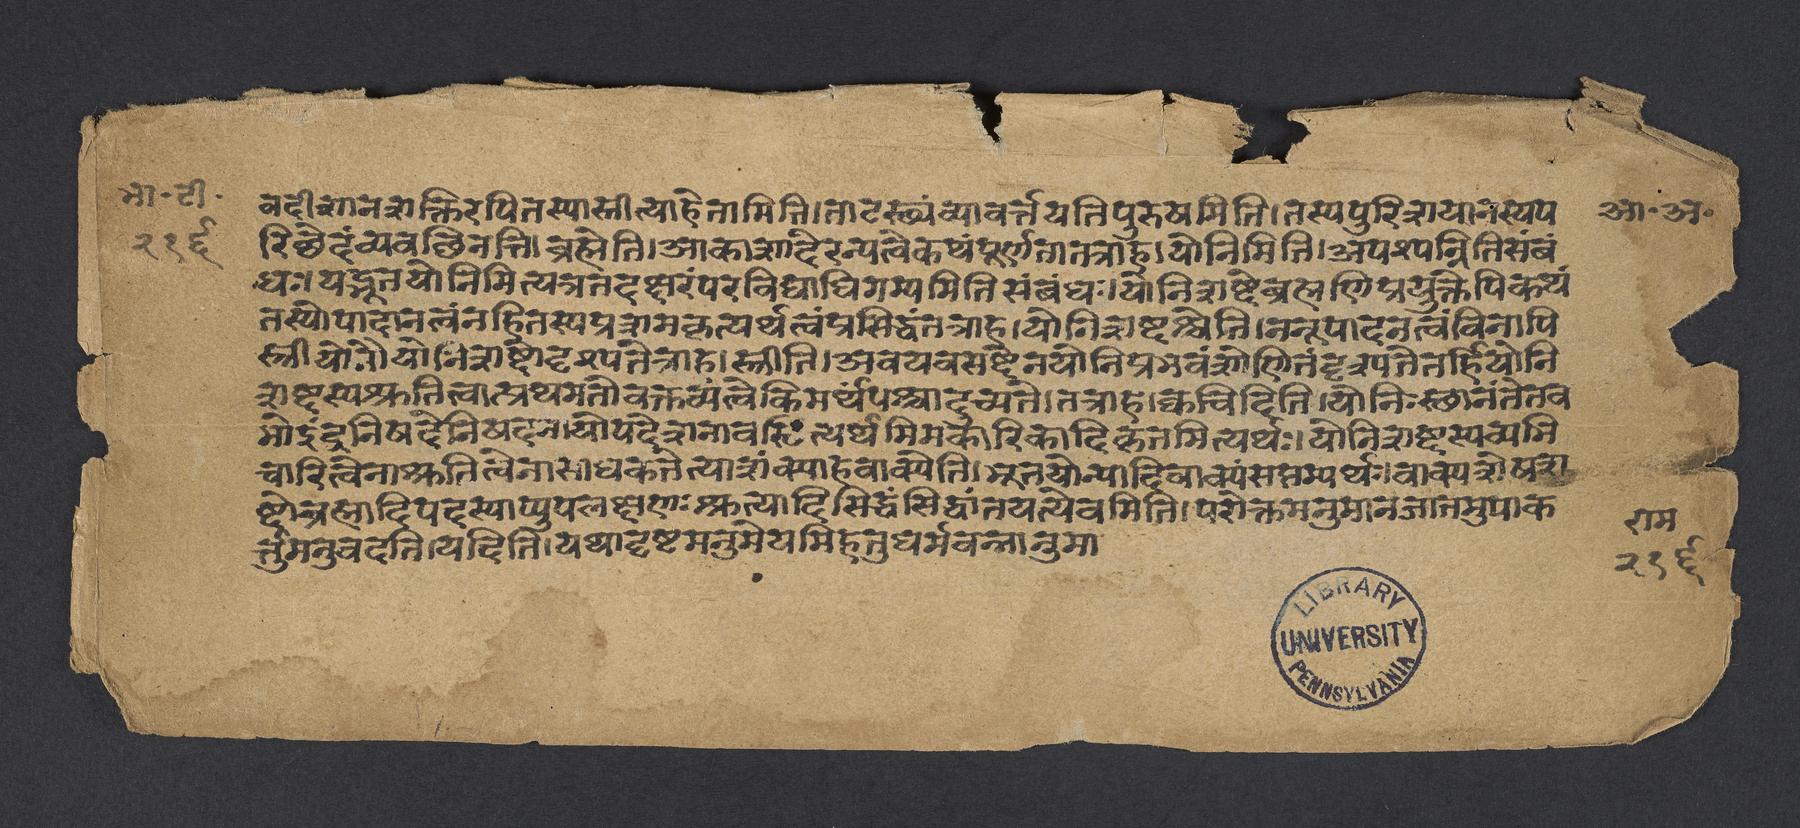 भा॰टी॰
२१६
आ॰अ॰
वदीशानशक्तिरपितस्यास्तीत्याहेनामिति।ताटस्थ्यंव्यावर्त्तयतिपुरुषमिति।तस्यपुरिशयानस्यप
रिछेदंव्यवछिनत्ति।ब्रह्मेति।आकाशादेरन्यत्वेकथंपूर्णतातत्राह।योनिमिति।अपश्यन्नितिसंबं
धः।यद्भूतयोनिमित्यत्रतदक्षरंपरविद्याधिगम्यमितिसंबंधः।योनिशब्देब्रह्मणिप्रयुक्तेपिकथं
तस्योपादानत्वंनहितस्यप्रकृत्यर्थत्वंप्रसिद्धंतत्राह।योनिशब्दश्चेति।ननूपादनत्वंविनापि
स्त्रीयोनौयोनिशब्दोदृश्यतेत्राह।स्त्रीति।अवयवसब्देनयोनिप्रभवंशोणितंदृश्यतेतर्हियोनि
शब्दस्यश्रुतित्वात्प्रथमतोवक्तव्यत्वेकिमर्थंपश्चादुच्यते।तत्राह।क्वचिदिति।योनिःस्थानंतेतव
भोइंद्रनिषदेनिषदन।योपदेशनाव त्यर्थमिमकारिकादिकृतमित्यर्थः।योनिशब्दस्यव्यभि
चारित्वेनाश्रुतित्वेनासाधकत्तेत्याशंक्याहवाक्येति।भूतयोन्यादिवाक्यंसप्तम्यर्थः।वाक्यशेषश
ब्दोब्रह्मादिपदस्याप्युपलक्षणःश्रुत्यादिसिद्धंसिद्धांतयत्येवमिति।परोक्तमनुमानजातमुपाक
र्तुमनुवदति।यदिति।यथादृष्टमनुमेयमिहतुधर्मवन्तानुमा
राम
२१६
LIBRARY
UNIVERSITY
PENNSYLVANIA